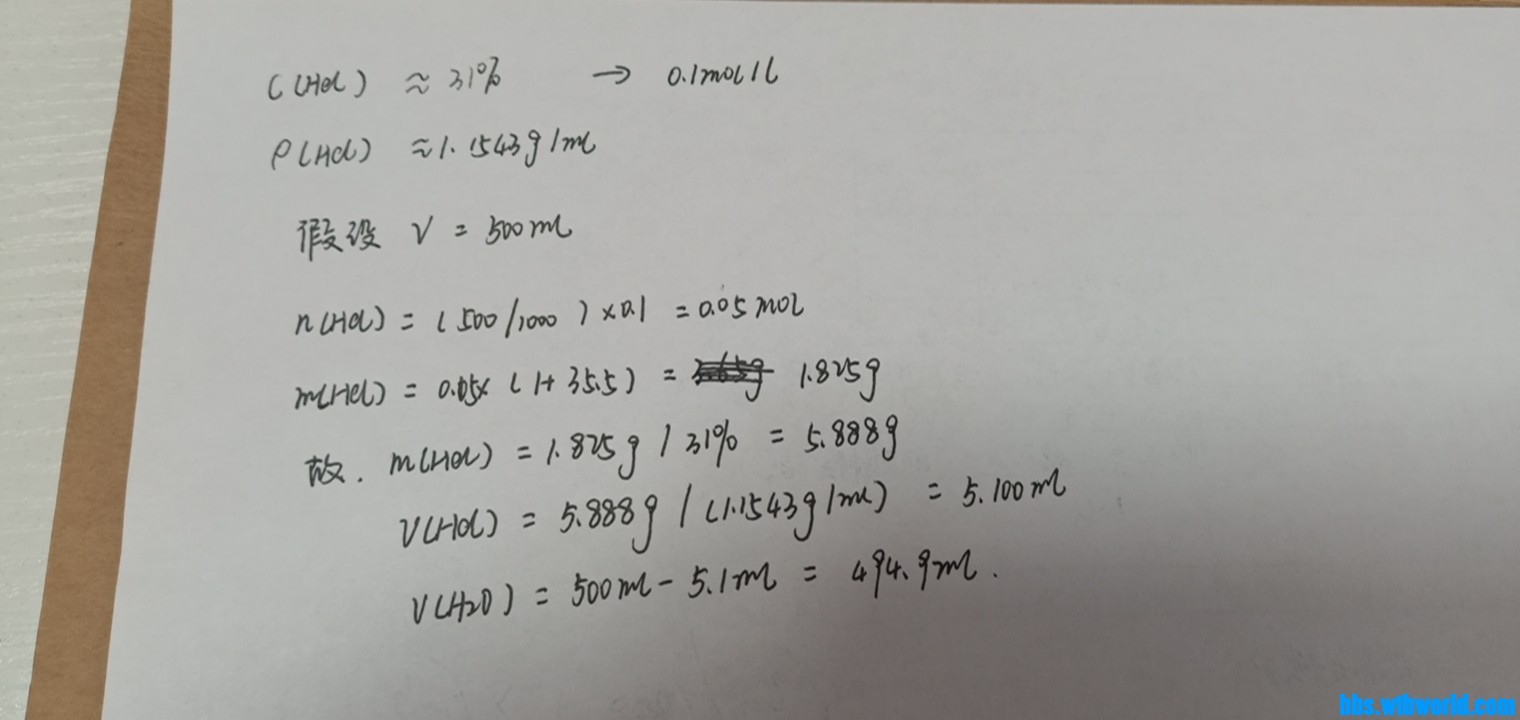 C(HCl) ≈ 31% → 0.1mol/L
ρ(HCl) ≈ 1.1543g/ml
假设 V = 500ml
n(HCl) = (500/1000)×0.1 = 0.05mol
m(HCl) = 0.05×(1+35.5) = 1.825g
故. m(HCl) = 1.825g / 31% = 5.888g
V(HCl) = 5.888g / (1.1543g/ml) = 5.100ml
V(H2O) = 500ml - 5.1ml = 494.9ml.
bbs.wthworld.com